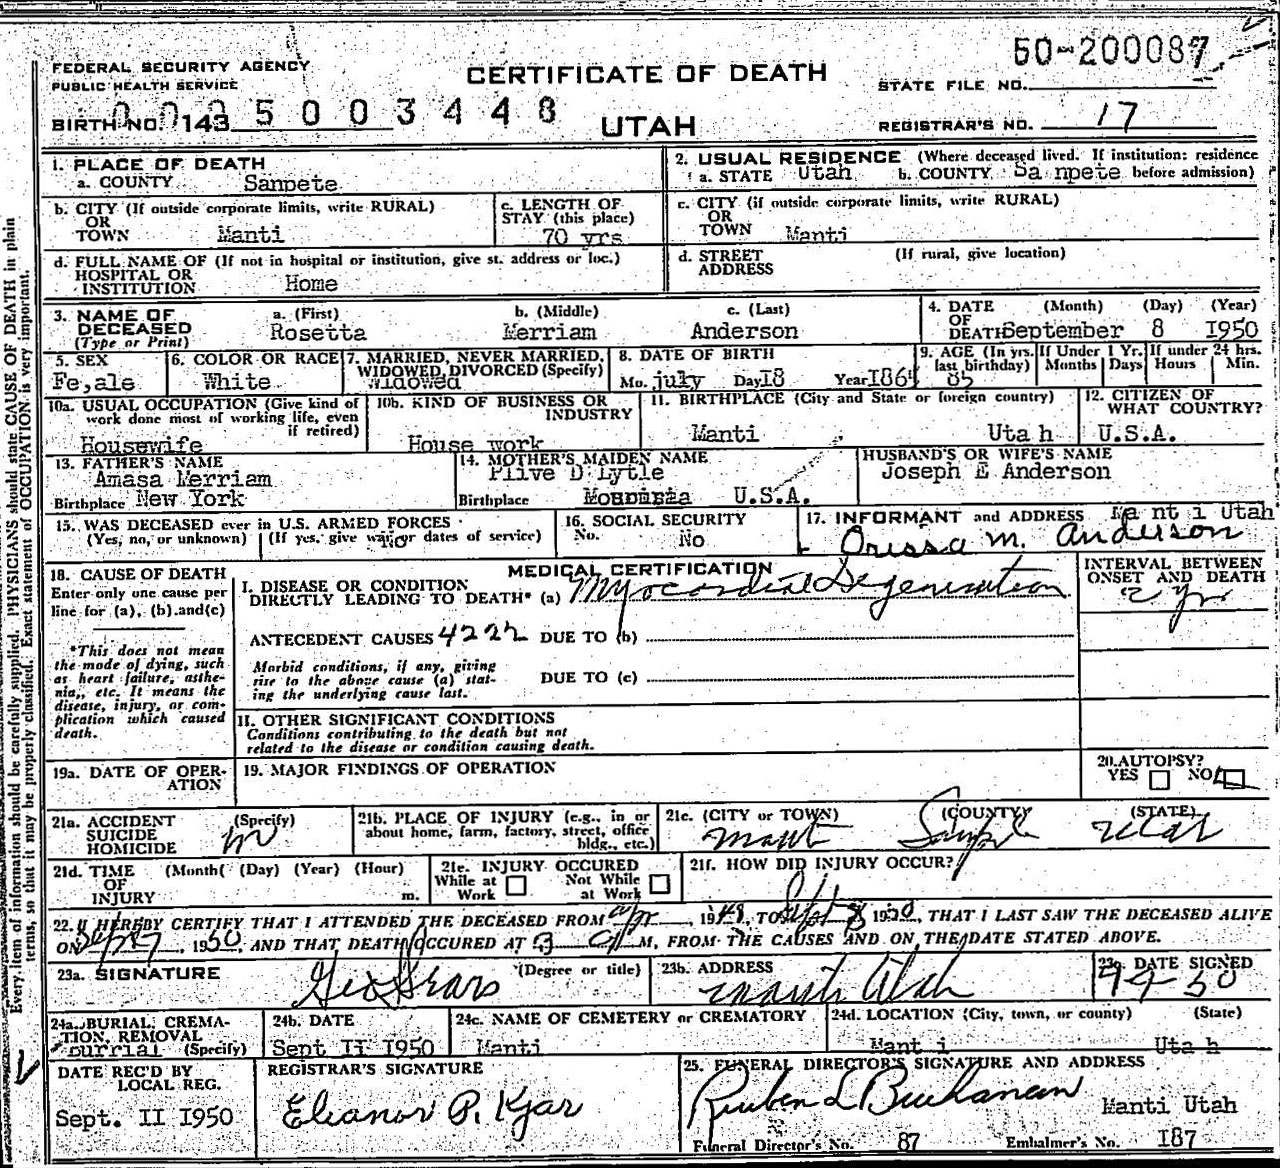 50-200087
FEDERAL SECURITY AGENCY
PUBLIC HEALTH SERVICE
CERTIFICATE OF DEATH
STATE FILE NO.
BIRTH NO. 143 5 0 0 3 4 4 8
UTAH
REGISTRAR'S NO. 17
1. PLACE OF DEATH
a. COUNTY Sanpete
2. USUAL RESIDENCE (Where deceased lived. If institution: residence
a. STATE Utah b. COUNTY Sa npete before admission)
b. CITY (If outside corporate limits, write RURAL)
OR
TOWN Manti
c. LENGTH OF
STAY (this place)
70 yrs
c. CITY (if outside corporate limits, write RURAL)
OR
TOWN Manti
d. FULL NAME OF (If not in hospital or institution, give st. address or loc.)
HOSPITAL OR
INSTITUTION Home
d. STREET (If rural, give location)
ADDRESS
3. NAME OF DECEASED
(Type or Print)
a. (First) b. (Middle) c. (Last)
Rosetta Merriam Anderson
4. DATE (Month) (Day) (Year)
OF
DEATH September 8 1950
5. SEX
Fe,ale
6. COLOR OR RACE
White
7. MARRIED, NEVER MARRIED,
WIDOWED, DIVORCED (Specify)
Widowed
8. DATE OF BIRTH
Mo. july Day 18 Year
9. AGE (In yrs. last birthday)
85
If Under 1 Yr. Months Days
If under 24 hrs. Hours Min.
10a. USUAL OCCUPATION (Give kind of
work done most of working life, even
if retired)
Housewife
10b. KIND OF BUSINESS OR
INDUSTRY
House work
11. BIRTHPLACE (City and State or foreign country)
Manti Uta h
12. CITIZEN OF
WHAT COUNTRY?
U.S.A.
13. FATHER'S NAME
Amasa Merriam
Birthplace New York
14. MOTHER'S MAIDEN NAME
Plive D Lytle
Birthplace U.S.A.
HUSBAND'S OR WIFE'S NAME
Joseph E Anderson
15. WAS DECEASED ever in U.S. ARMED FORCES
(Yes, no, or unknown) (If yes. give war or dates of service)
no
16. SOCIAL SECURITY
No. No
17. INFORMANT and ADDRESS Ma nt i Utah
Orissa M. Anderson
MEDICAL CERTIFICATION
18. CAUSE OF DEATH
Enter only one cause per
line for (a), (b) and (c)
*This does not mean
the mode of dying, such
as heart failure, asthe-
nia,, etc. It means the
disease, injury, or com-
plication which caused
death.
I. DISEASE OR CONDITION
DIRECTLY LEADING TO DEATH* (a) Myocardial Degeneration
INTERVAL BETWEEN
ONSET AND DEATH
2 yrs
ANTECEDENT CAUSES 4222 DUE TO (b)
Morbid conditions, if any, giving
rise to the above cause (a) stat-
ing the underlying cause last.
DUE TO (c)
II. OTHER SIGNIFICANT CONDITIONS
Conditions contributing to the death but not
related to the disease or condition causing death.
19a. DATE OF OPER-
ATION
19. MAJOR FINDINGS OF OPERATION
20. AUTOPSY?
YES NO
21a. ACCIDENT (Specify)
SUICIDE
HOMICIDE no
21b. PLACE OF INJURY (e.g., in or
about home, farm, factory, street, office
bldg., etc.)
21c. (CITY or TOWN) (COUNTY) (STATE)
Manti Sanpete Utah
21d. TIME (Month( (Day) (Year) (Hour)
OF
INJURY m.
21e. INJURY OCCURED
While at Work Not While at Work
21f. HOW DID INJURY OCCUR?
22. I HEREBY CERTIFY THAT I ATTENDED THE DECEASED FROM Apr, 1949, TO Sept 8 1950, THAT I LAST SAW THE DECEASED ALIVE
ON Sept 7, 1950, AND THAT DEATH OCCURED AT 3 a M, FROM THE CAUSES AND ON THE DATE STATED ABOVE.
23a. SIGNATURE (Degree or title)
Geo Sears
23b. ADDRESS
Manti Utah
23c. DATE SIGNED
24a. BURIAL, CREMA-
TION, REMOVAL
burrial (Specify)
24b. DATE
Sept II 1950
24c. NAME OF CEMETERY or CREMATORY
Manti
24d. LOCATION (City, town, or county) (State)
Mant i Uta h
DATE REC'D BY
LOCAL REG.
Sept. II 1950
REGISTRAR'S SIGNATURE
Eleanor P. Kjar
25. FUNERAL DIRECTOR'S SIGNATURE AND ADDRESS
Reuben L Buchanan Manti Utah
Funeral Director's No. 87 Embalmer's No. 187
Every item of information should be carefully supplied. PHYSICIANS should state CAUSE OF DEATH in plain
terms, so that it may be properly classified. Exact statement of OCCUPATION is very important.